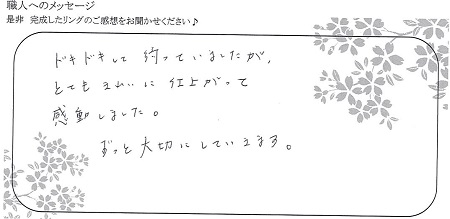 職人へのメッセージ
是非 完成したリングのご感想をお聞かせください♪
ドキドキして 待っていましたが、
とても きれいに 仕上がって
感動しました。
ずっと 大切に していきます。